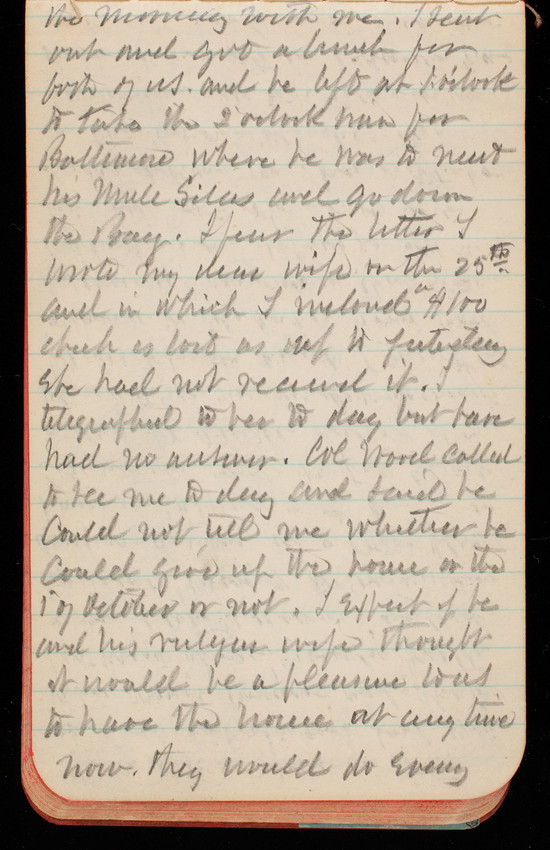 the morning with me. I sent
out and got a lunch for
both of us. and he left at 1 oclock
to take the 2 oclock train for
Baltimore where he was to meet
his Uncle Silas and go down
the Bay. I fear the letter I
wrote my dear wife on the 25th
and in which I inclosed a $100
check is lost as up to yesterday
She had not received it. I
telegraphed to her to day but have
had no answer. Col Wood called
to see me to day and said he
Could not tell me whether he
Could give up the house on the
1 of October or not. I expect if he
and his vulgar wife thought
it would be a pleasure to us
to have the house at any time
now. they would do every